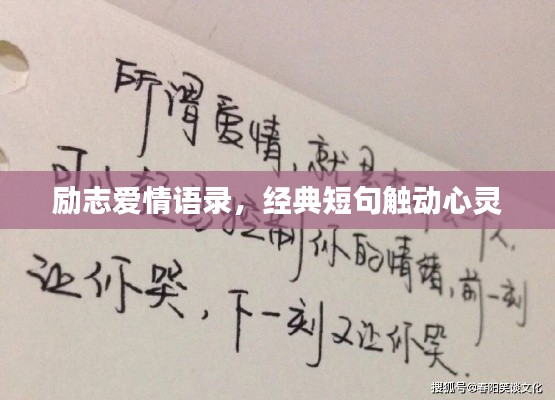 所谓爱情,就是
人,
励志爱情语录，经典短句触动心灵
控制你的情绪,前一刻
让你哭,下一刻又让你哭.
搜狐号@春阳笑谈文化